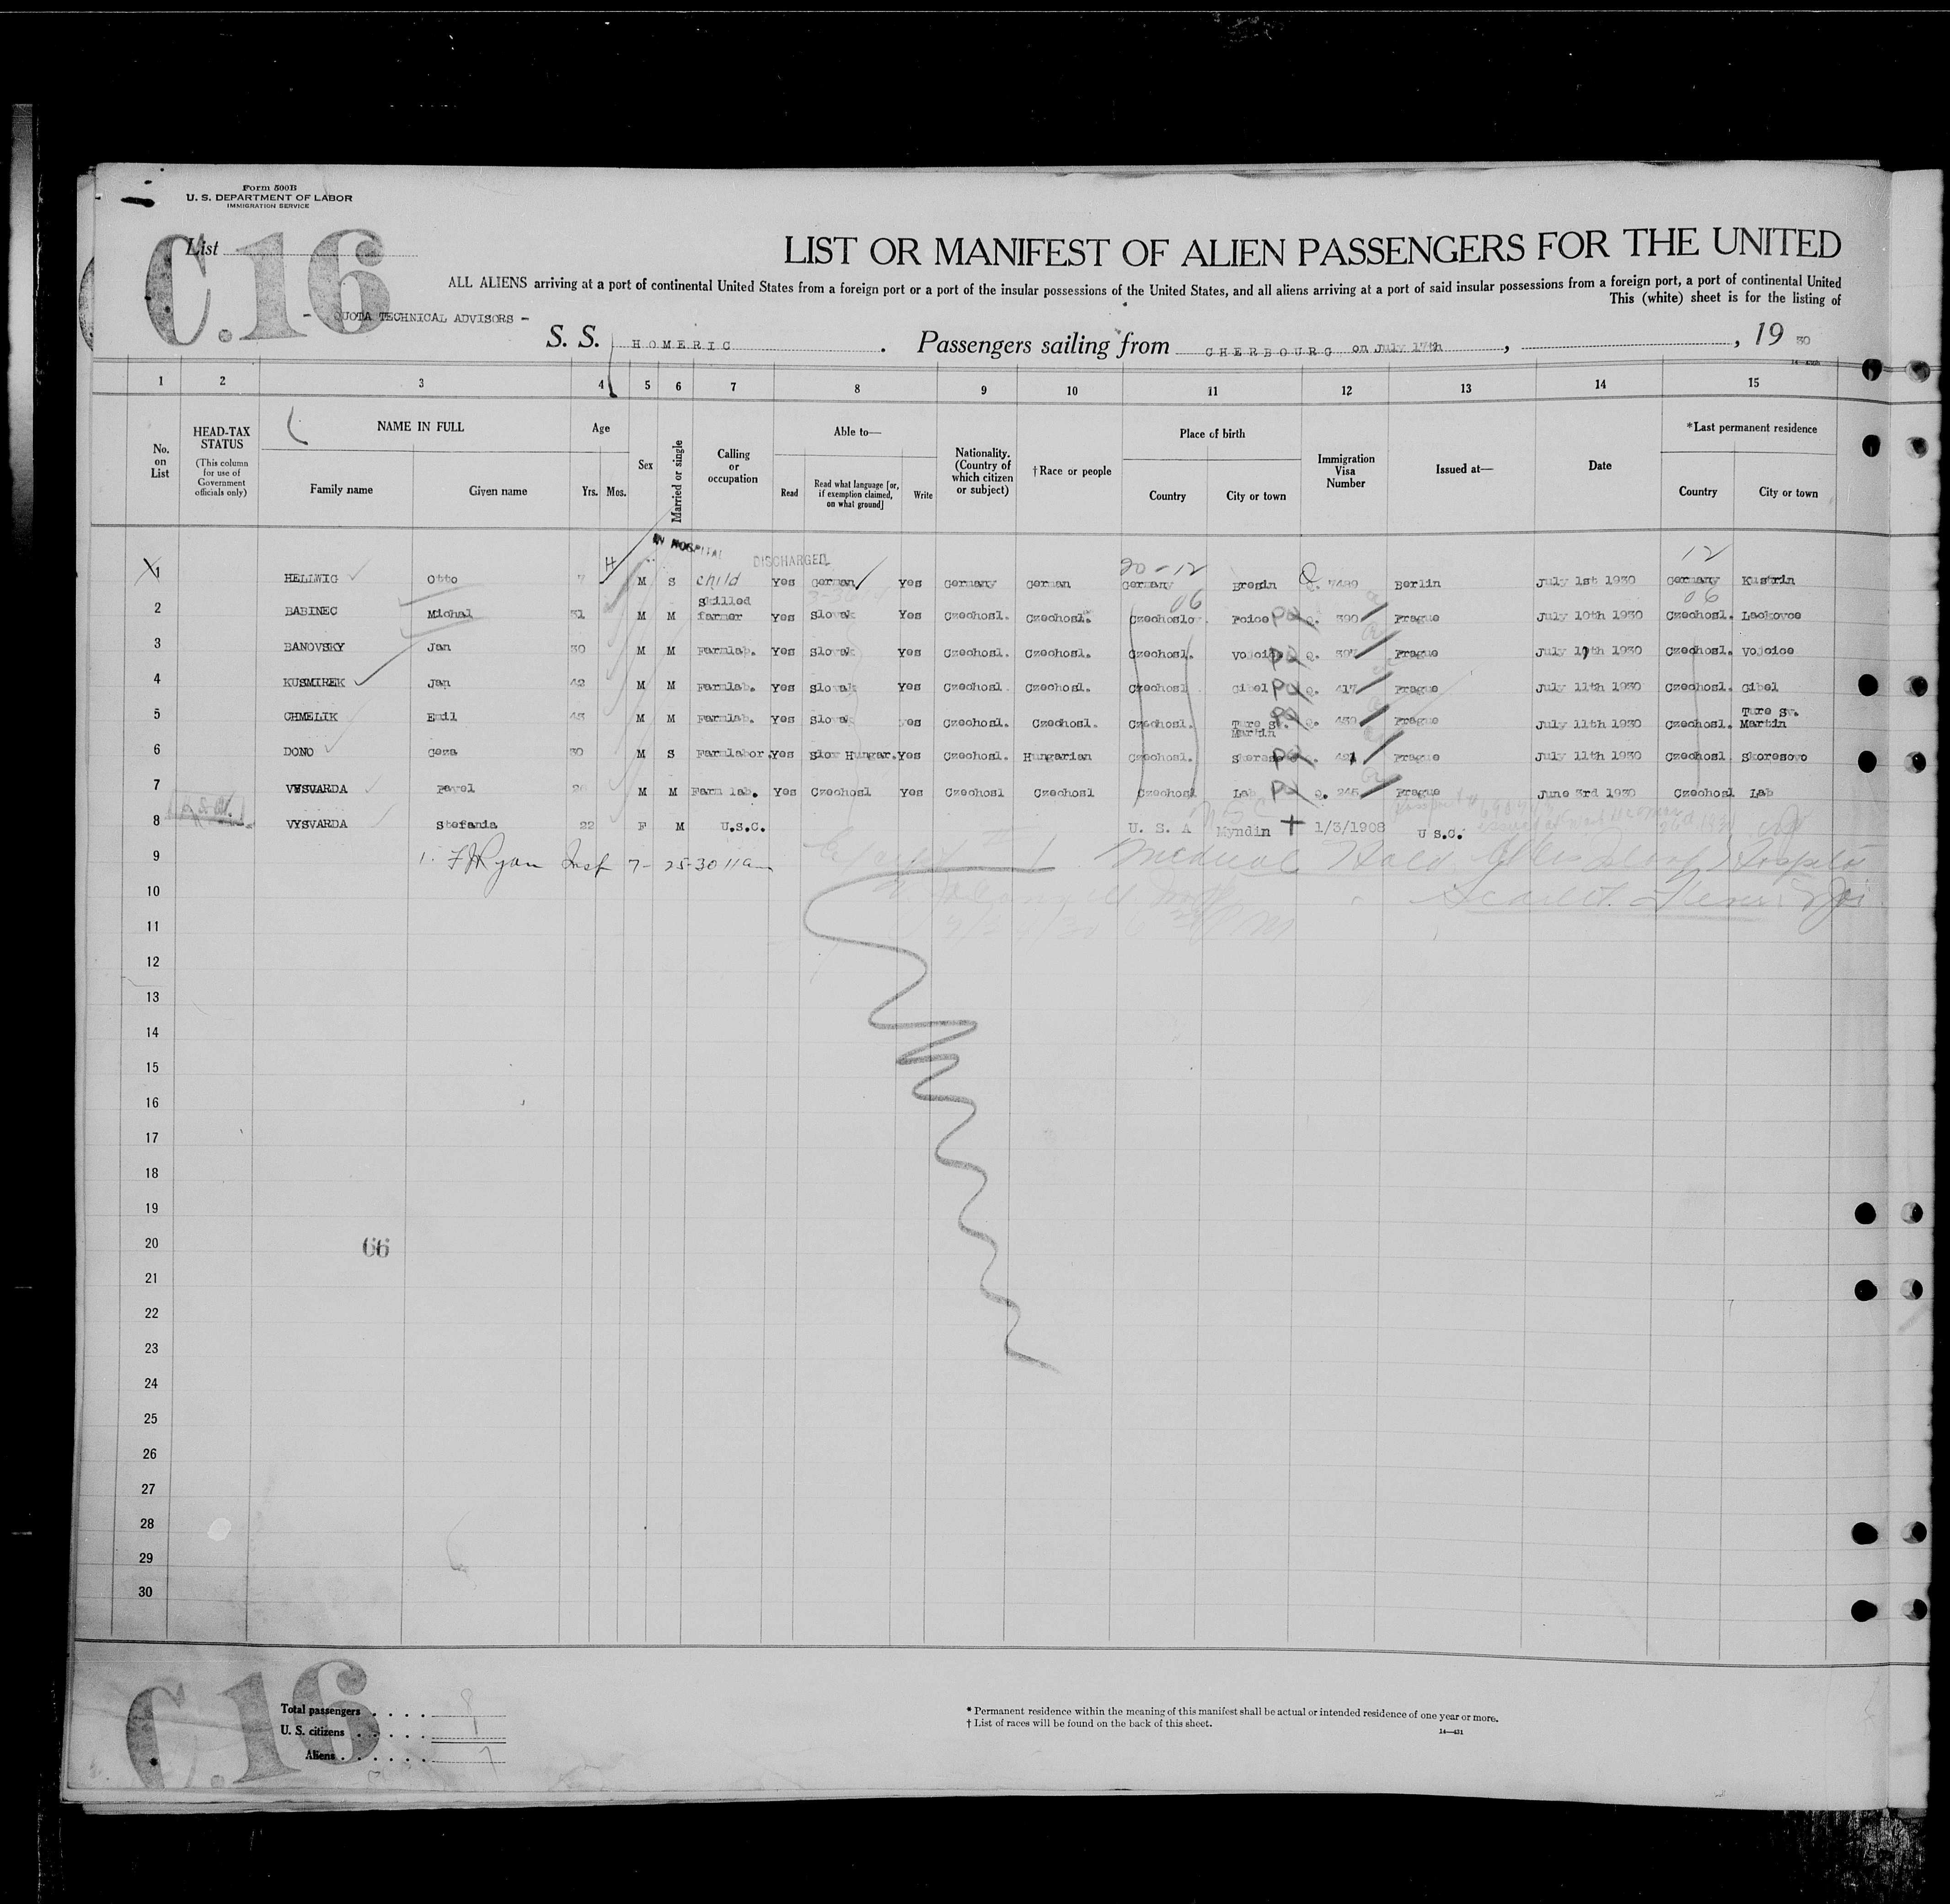 Form 500B
U. S. DEPARTMENT OF LABOR
IMMIGRATION SERVICE
C.16
List
LIST OR MANIFEST OF ALIEN PASSENGERS FOR THE UNITED
ALL ALIENS arriving at a port of continental United States from a foreign port or a port of the insular possessions of the United States, and all aliens arriving at a port of said insular possessions from a foreign port, a port of continental United
This (white) sheet is for the listing of
- QUOTA TECHNICAL ADVISORS -
S. S. HOMERIC. Passengers sailing from CHERBOURG on July 17th, , 19 30
1 2 3 4 5 6 7 8 9 10 11 12 13 14 15
No. on List
HEAD-TAX STATUS (This column for use of Government officials only)
NAME IN FULL
Family name Given name
Age
Yrs. Mos.
Sex
Married or single
Calling or occupation
Able to—
Read Read what language [or, if exemption claimed, on what ground] Write
Nationality. (Country of which citizen or subject)
†Race or people
Place of birth
Country City or town
Immigration Visa Number
Issued at—
Date
*Last permanent residence
Country City or town
IN HOSPITAL DISCHARGED
20-12 12
1 HELLWIG Otto 7 M S child Yes German Yes Germany German Germany Bresin Q. 7489 Berlin July 1st 1930 Germany Kustrin
06 06
2 BABINEC Michal 31 M M Skilled farmer Yes Slovak Yes Czechosl. Czechosl. Czechoslo. Q. 390 Prague July 10th 1930 Czechosl. Lackovce
3 BANOVSKY Jan 30 M M Farmlab. Yes Slovak Yes Czechosl. Czechosl. Czechosl. Q. Prague July 1930 Czechosl. Vojcice
4 KUSMIREK Jan 42 M M Farmlab. Yes Slovak Yes Czechosl. Czechosl. Czechosl Cibel Q. 417 Prague July 11th 1930 Czechosl. Cibel
5 CHMELIK Emil 43 M M Farmlab. Yes Slovak Yes Czechosl. Czechosl. Czechosl. Turc Sv. Martin Q. Prague July 11th 1930 Czechosl. Turc Sv. Martin
6 DONO Geza 30 M S Farmlabor. Yes Slov Hungar. Yes Czechosl. Hungarian Czechosl. 421 Prague July 11th 1930 Czechosl Skoresovo
7 VYSVARDA Pavel M M Farm lab. Yes Czechosl Yes Czechosl Czechosl Czechosl Lab Q. 245 Prague June 3rd 1930 Czechosl Lab
8 VYSVARDA Stefania 22 F M U.S.C. U. S. A Myndin 1/3/1908 U S.C.
9 1. F J Ryan Insp 7-25-30 11am Medical Hold
10
11
12
13
14
15
16
17
18
19
20 66
21
22
23
24
25
26
27
28
29
30
C.16
Total passengers
U. S. citizens
Aliens 7
* Permanent residence within the meaning of this manifest shall be actual or intended residence of one year or more.
† List of races will be found on the back of this sheet.
14—431